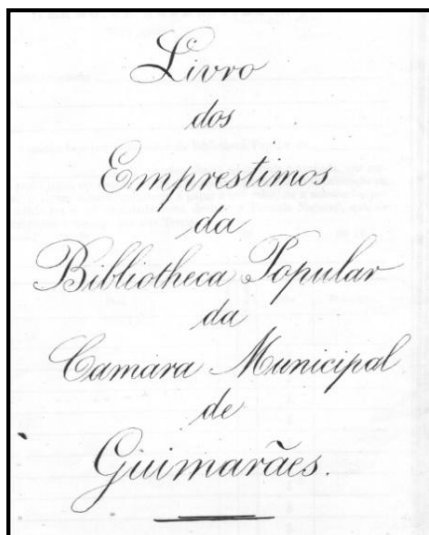 Livro
dos
Emprestimos
da
Bibliotheca Popular
da
Camara Municipal
de
Guimarães.